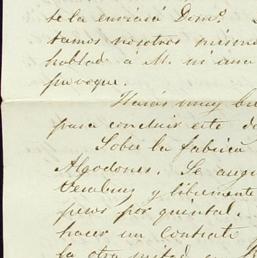 te la enviará Domº.
tamos nosotros mismo
hablad a M.
provoque.
Harás muy bi
para concluir este
Sobre la fabrica
Algodones. Se
y libremente
pesos por quintal.
hacer un Contrato
la otra mitad